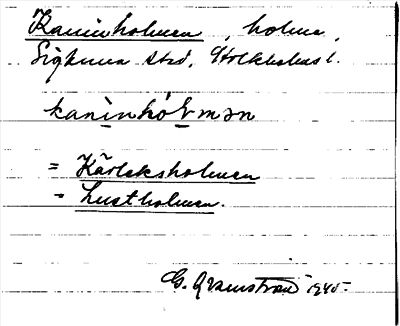 Kaninholmen, holme,
Sigtuna stad, Stockholms l.
kanìnhólmən
= Kärleksholmen
= Lustholmen.
G. Qvarnström 1945